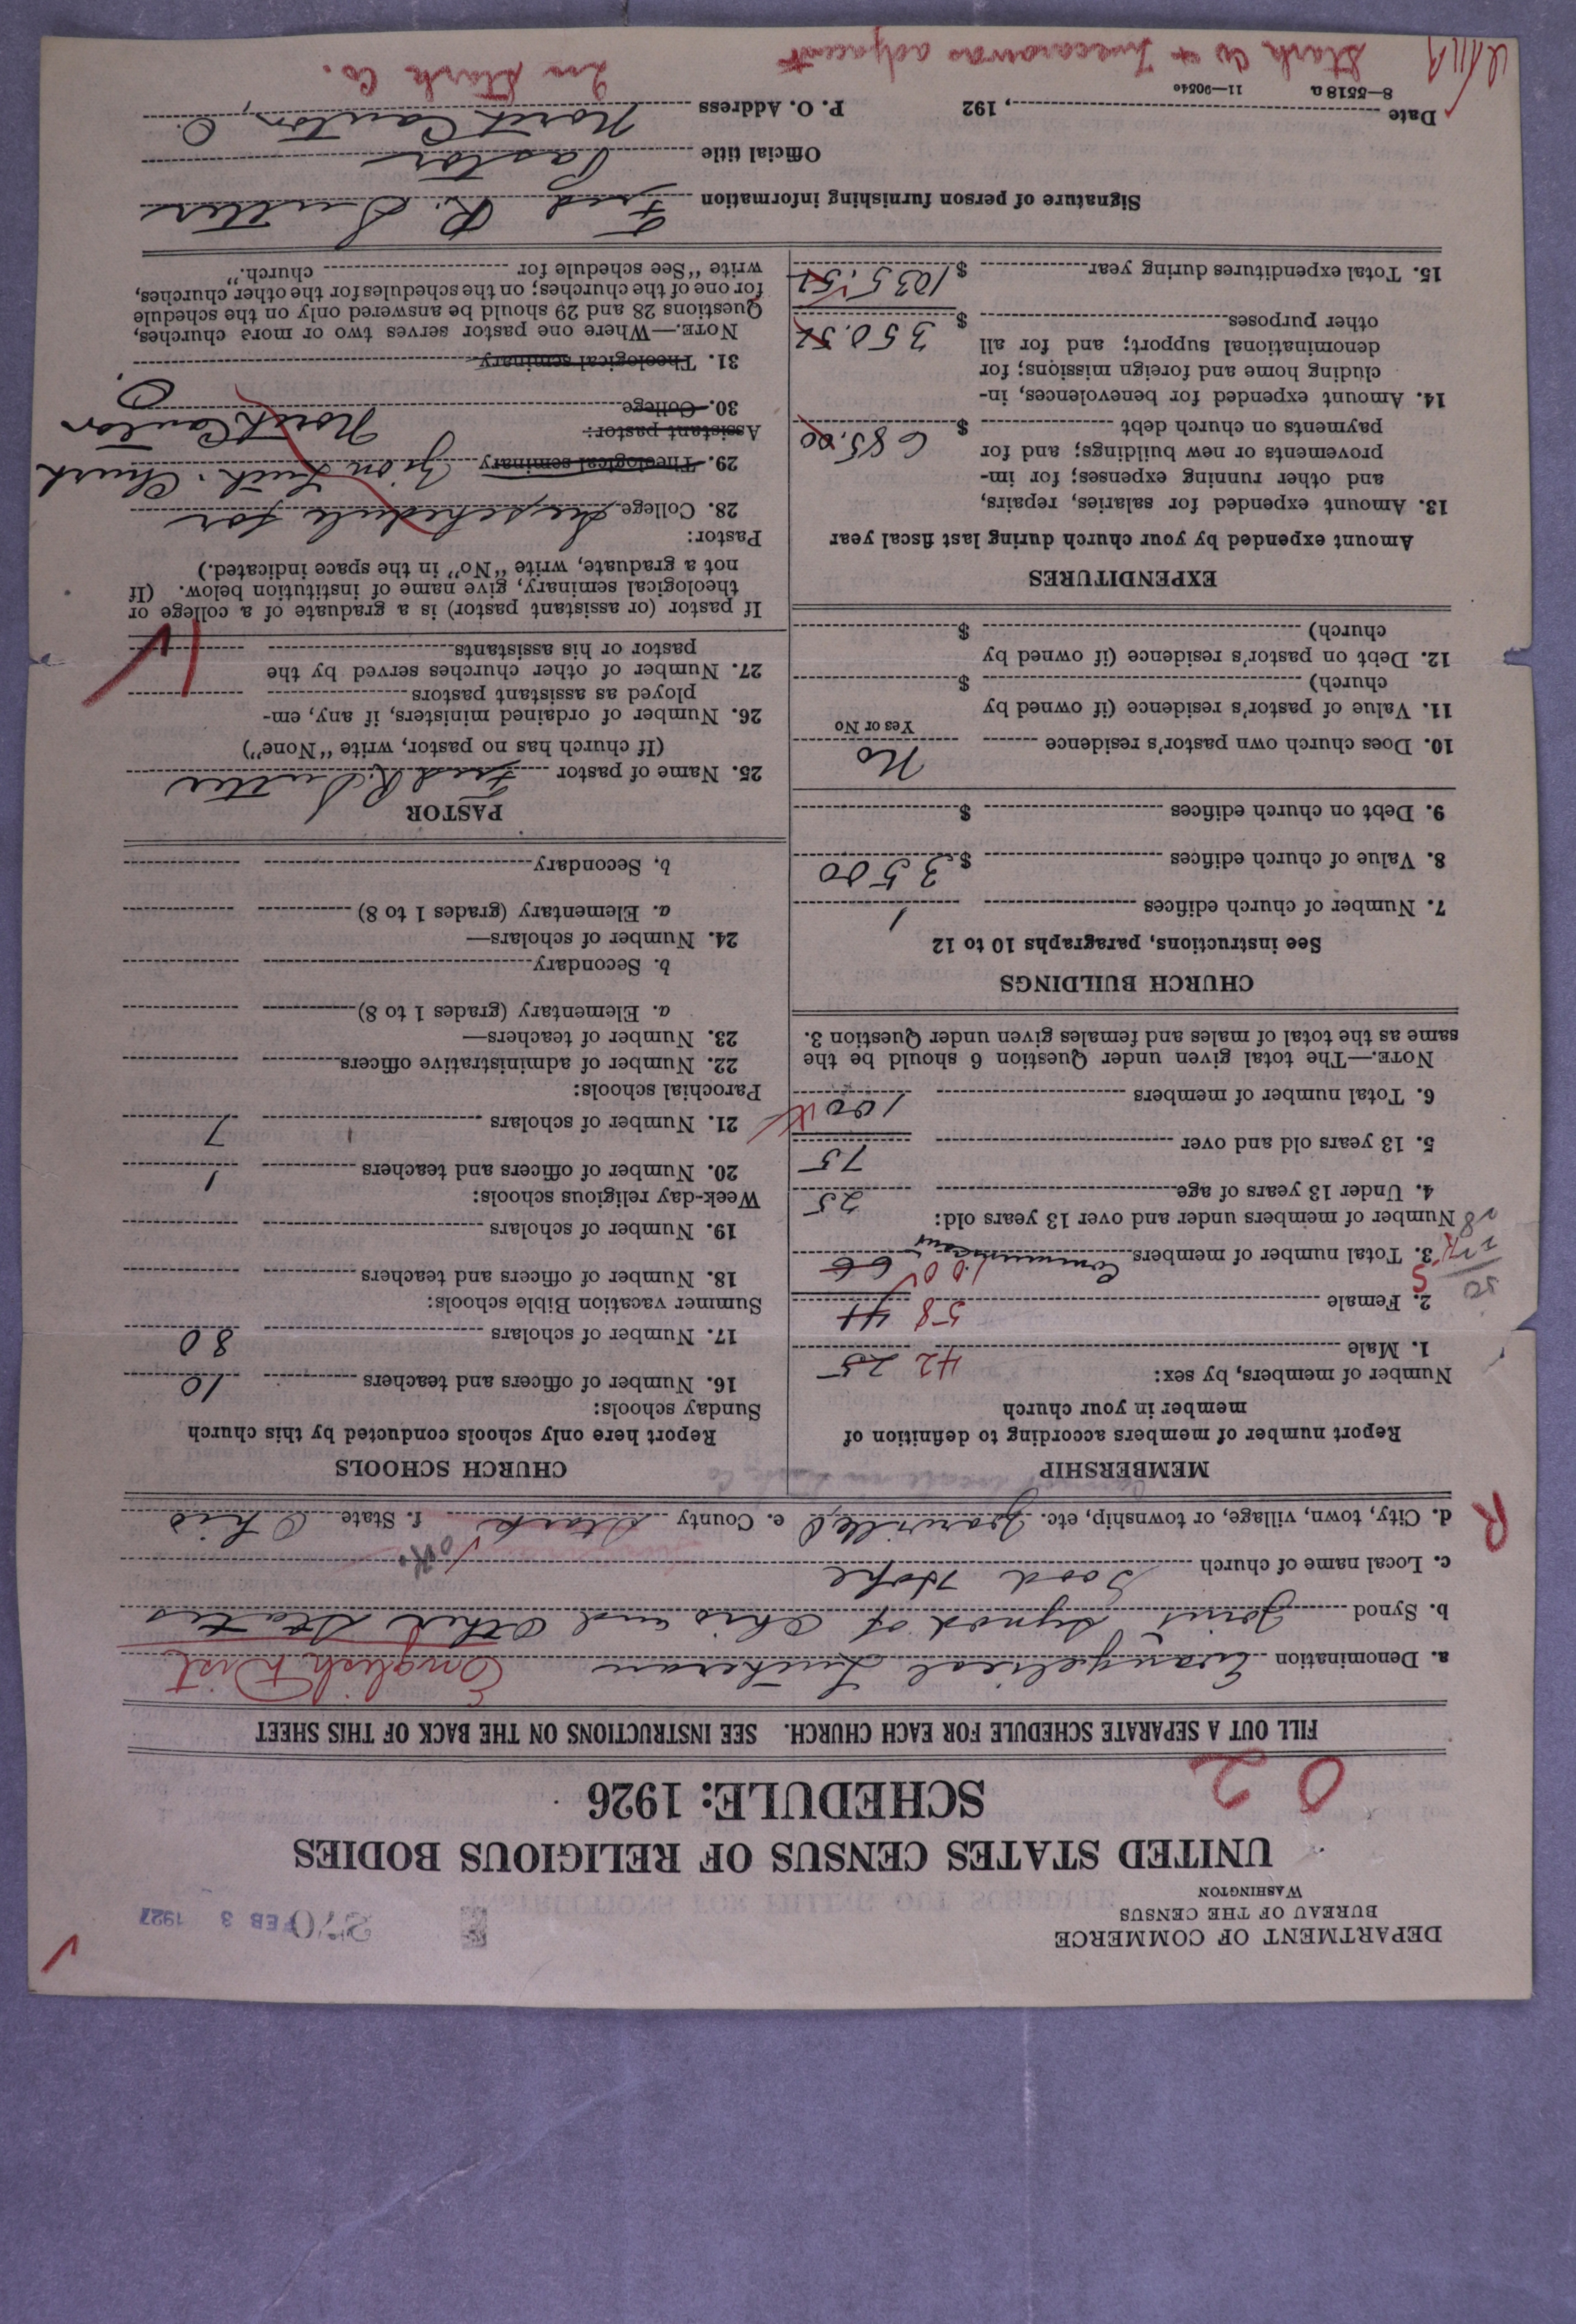 DEPARTMENT OF COMMERCE
BUREAU OF THE CENSUS
WASHINGTON
FEB 3 1927
UNITED STATES CENSUS OF RELIGIOUS BODIES
SCHEDULE: 1926
0 2
FILL OUT A SEPARATE SCHEDULE FOR EACH CHURCH. SEE INSTRUCTIONS ON THE BACK OF THIS SHEET
a. Denomination Evangelical Lutheran English Dist
b. Synod Joint Synod of Ohio and Other States
c. Local name of church Good Hope
R
d. City, town, village, or township, etc. e. County Stark f. State Ohio
MEMBERSHIP
Report number of members according to definition of member in your church
Number of members, by sex:
1. Male 42 25
2. Female 58 41
3. Total number of members Communicant 100 66
Number of members under and over 13 years old:
4. Under 13 years of age 25
5. 13 years old and over 75
6. Total number of members 100
NOTE.—The total given under Question 6 should be the
same as the total of males and females given under Question 3.
CHURCH BUILDINGS
See instructions, paragraphs 10 to 12
7. Number of church edifices 1
8. Value of church edifices $ 3500
9. Debt on church edifices $
10. Does church own pastor's residence No
Yes or No
11. Value of pastor's residence (if owned by
church) $
12. Debt on pastor's residence (if owned by
church) $
EXPENDITURES
Amount expended by your church during last fiscal year
13. Amount expended for salaries, repairs,
and other running expenses; for im-
provements or new buildings; and for
payments on church debt $ 685.00
14. Amount expended for benevolences, in-
cluding home and foreign missions; for
denominational support; and for all
other purposes $ 350.51
15. Total expenditures during year $ 1035.51
CHURCH SCHOOLS
Report here only schools conducted by this church
Sunday schools:
16. Number of officers and teachers 10
17. Number of scholars 80
Summer vacation Bible schools:
18. Number of officers and teachers
19. Number of scholars
Week-day religious schools:
20. Number of officers and teachers 1
21. Number of scholars 7
Parochial schools:
22. Number of administrative officers
23. Number of teachers—
a. Elementary (grades 1 to 8)
b. Secondary
24. Number of scholars—
a. Elementary (grades 1 to 8)
b. Secondary
PASTOR
25. Name of pastor Fred R. Sutter
(If church has no pastor, write "None")
26. Number of ordained ministers, if any, em-
ployed as assistant pastors
27. Number of other churches served by the
pastor or his assistants
If pastor (or assistant pastor) is a graduate of a college or
theological seminary, give name of institution below. (If
not a graduate, write "No" in the space indicated.)
Pastor:
28. College See schedule for
29. Theological seminary Zion Luth. Church
Assistant pastor: North Canton
30. College O.
31. Theological seminary
NOTE.—Where one pastor serves two or more churches,
Questions 28 and 29 should be answered only on the schedule
for one of the churches; on the schedules for the other churches,
write "See schedule for church."
Signature of person furnishing information Fred R. Sutter
Official title Pastor
Date , 192 P. O. Address North Canton, O.
8—5518 a 11—90540
In Stark Co.
Stark Co + Tuscarawas adjacent